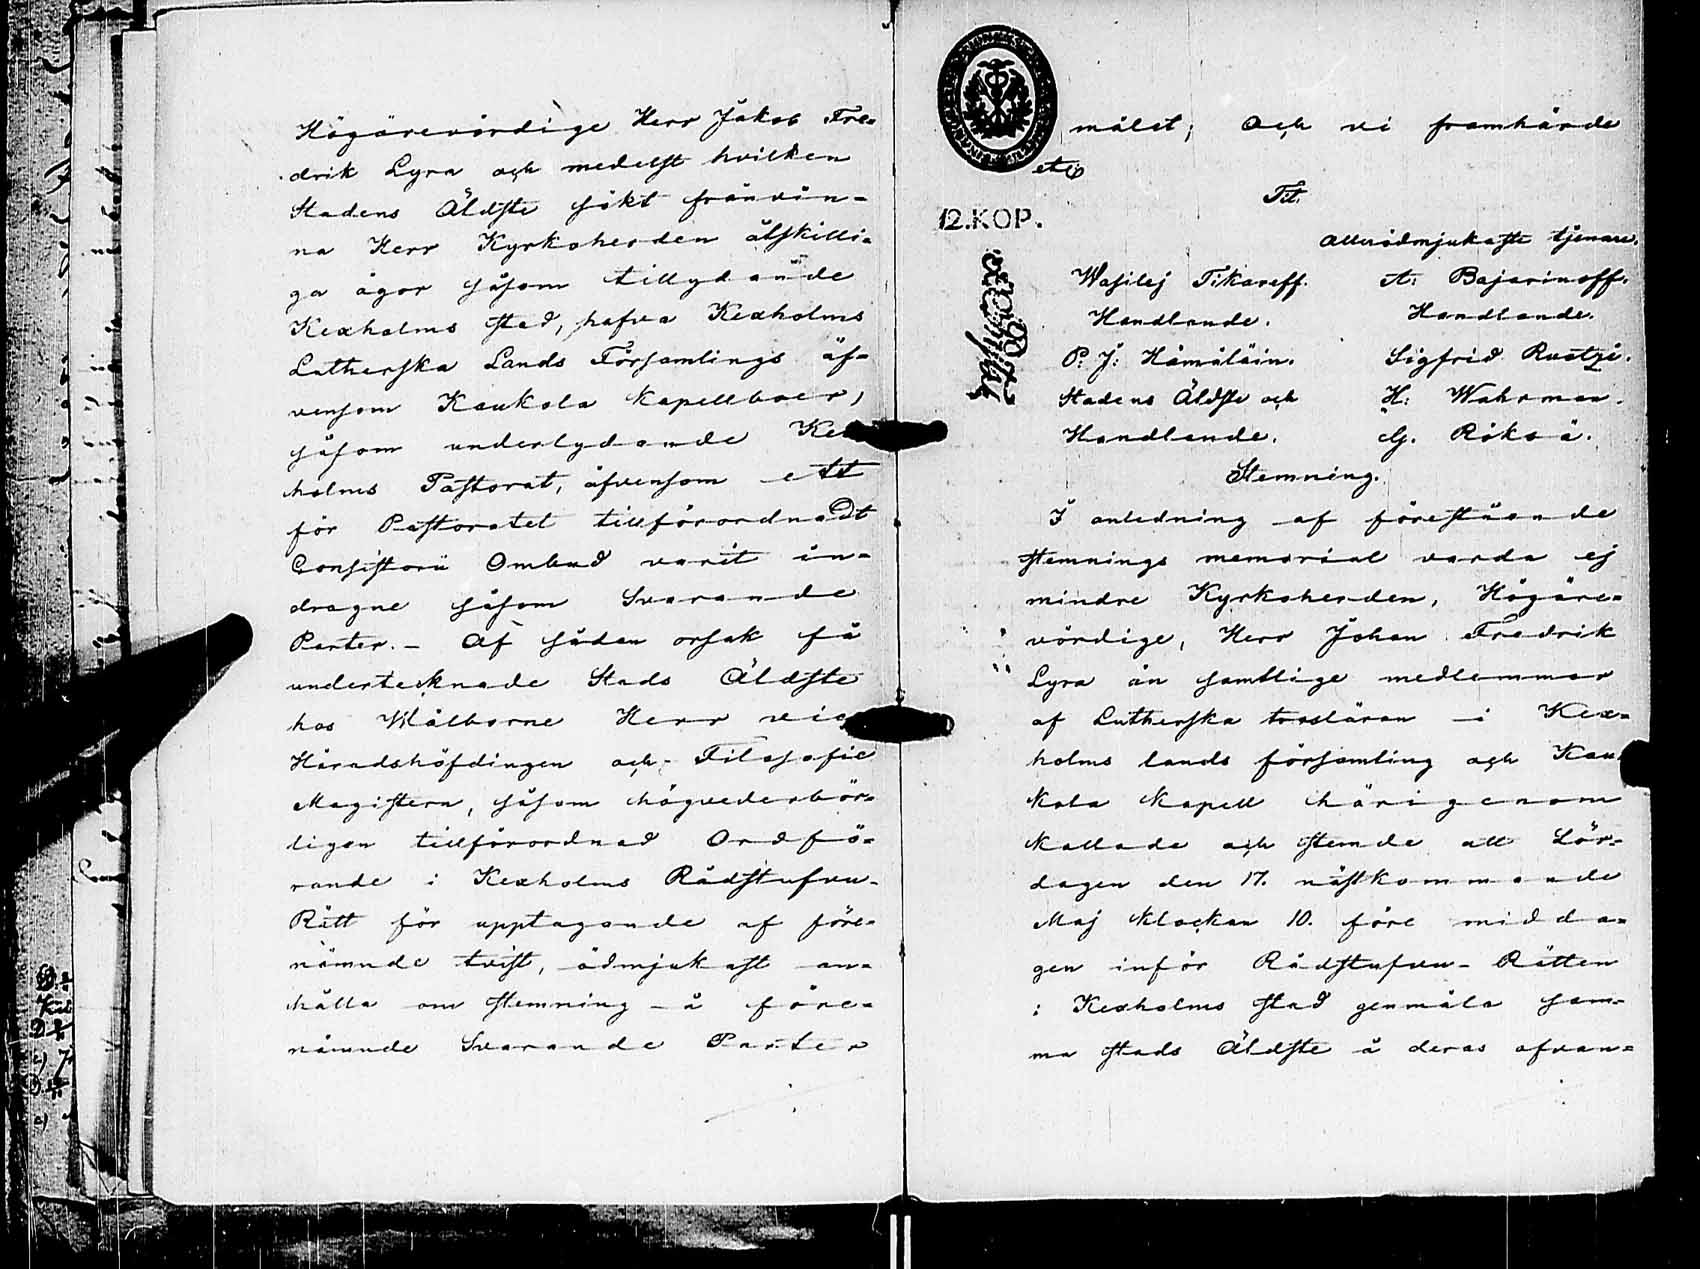 Högärevördige Herr Jakob Fre-
drik Lyra och medelst hvilken
Stadens Äldste sökt frånvin-
na Herr Kyrkoherden åtskilli-
ga ägor såsom tillydande
Kexholms stad, hafva Kexholms
Lutherska Lands Församlings äf-
vensom Kaukola Kapellboer,
såsom underlydande Kex
holms Pastorat, äfvensom ett
för Pastoratet tillförordnadt
Consistorii Ombud varit in-
dragne såsom Svarande
Parter. – Af sådan orsak få
undertecknade Stads Äldste
hos Wälborne Herr vice
Häradshöfdingen och Filosofie
Magistern, såsom högvederbör-
ligen tillförordnad Ordfö-
rande i Kexholms Rådstufvu-
Rätt för upptagande af före-
nämnde tvist, ödmjukast an-
hålla om stemning å före-
nämnde Svarande Parter
målet; Och vi framhärde
etc
Tit.
12.KOP.
allerödmjukaste tjenare.
Wasilej Tikareff. A. Bajarinoff.
Handlande. Handlande.
P. J: Hämäläin. Sigfrid Rustzi.
Stadens Äldste och H: Wahrman.
Handlande. G. Röksä.
Stemning.
I anledning af förestående
stemnings memorial varda ej
mindre Kyrkoherden, Högäre-
vördige, Herr Johan Fredrik
Lyra än samtlige medlemmar
af Lutherska trosläran i Kex-
holms lands församling och Kau
kola Kapell härigenom
kallade och stemde att Lör-
dagen den 17. nästkommande
Maj klockan 10. före midda-
gen inför Rådstufvu-Rätten
i Kexholms stad genmäla sam-
ma stads Äldste å deras ofvan-